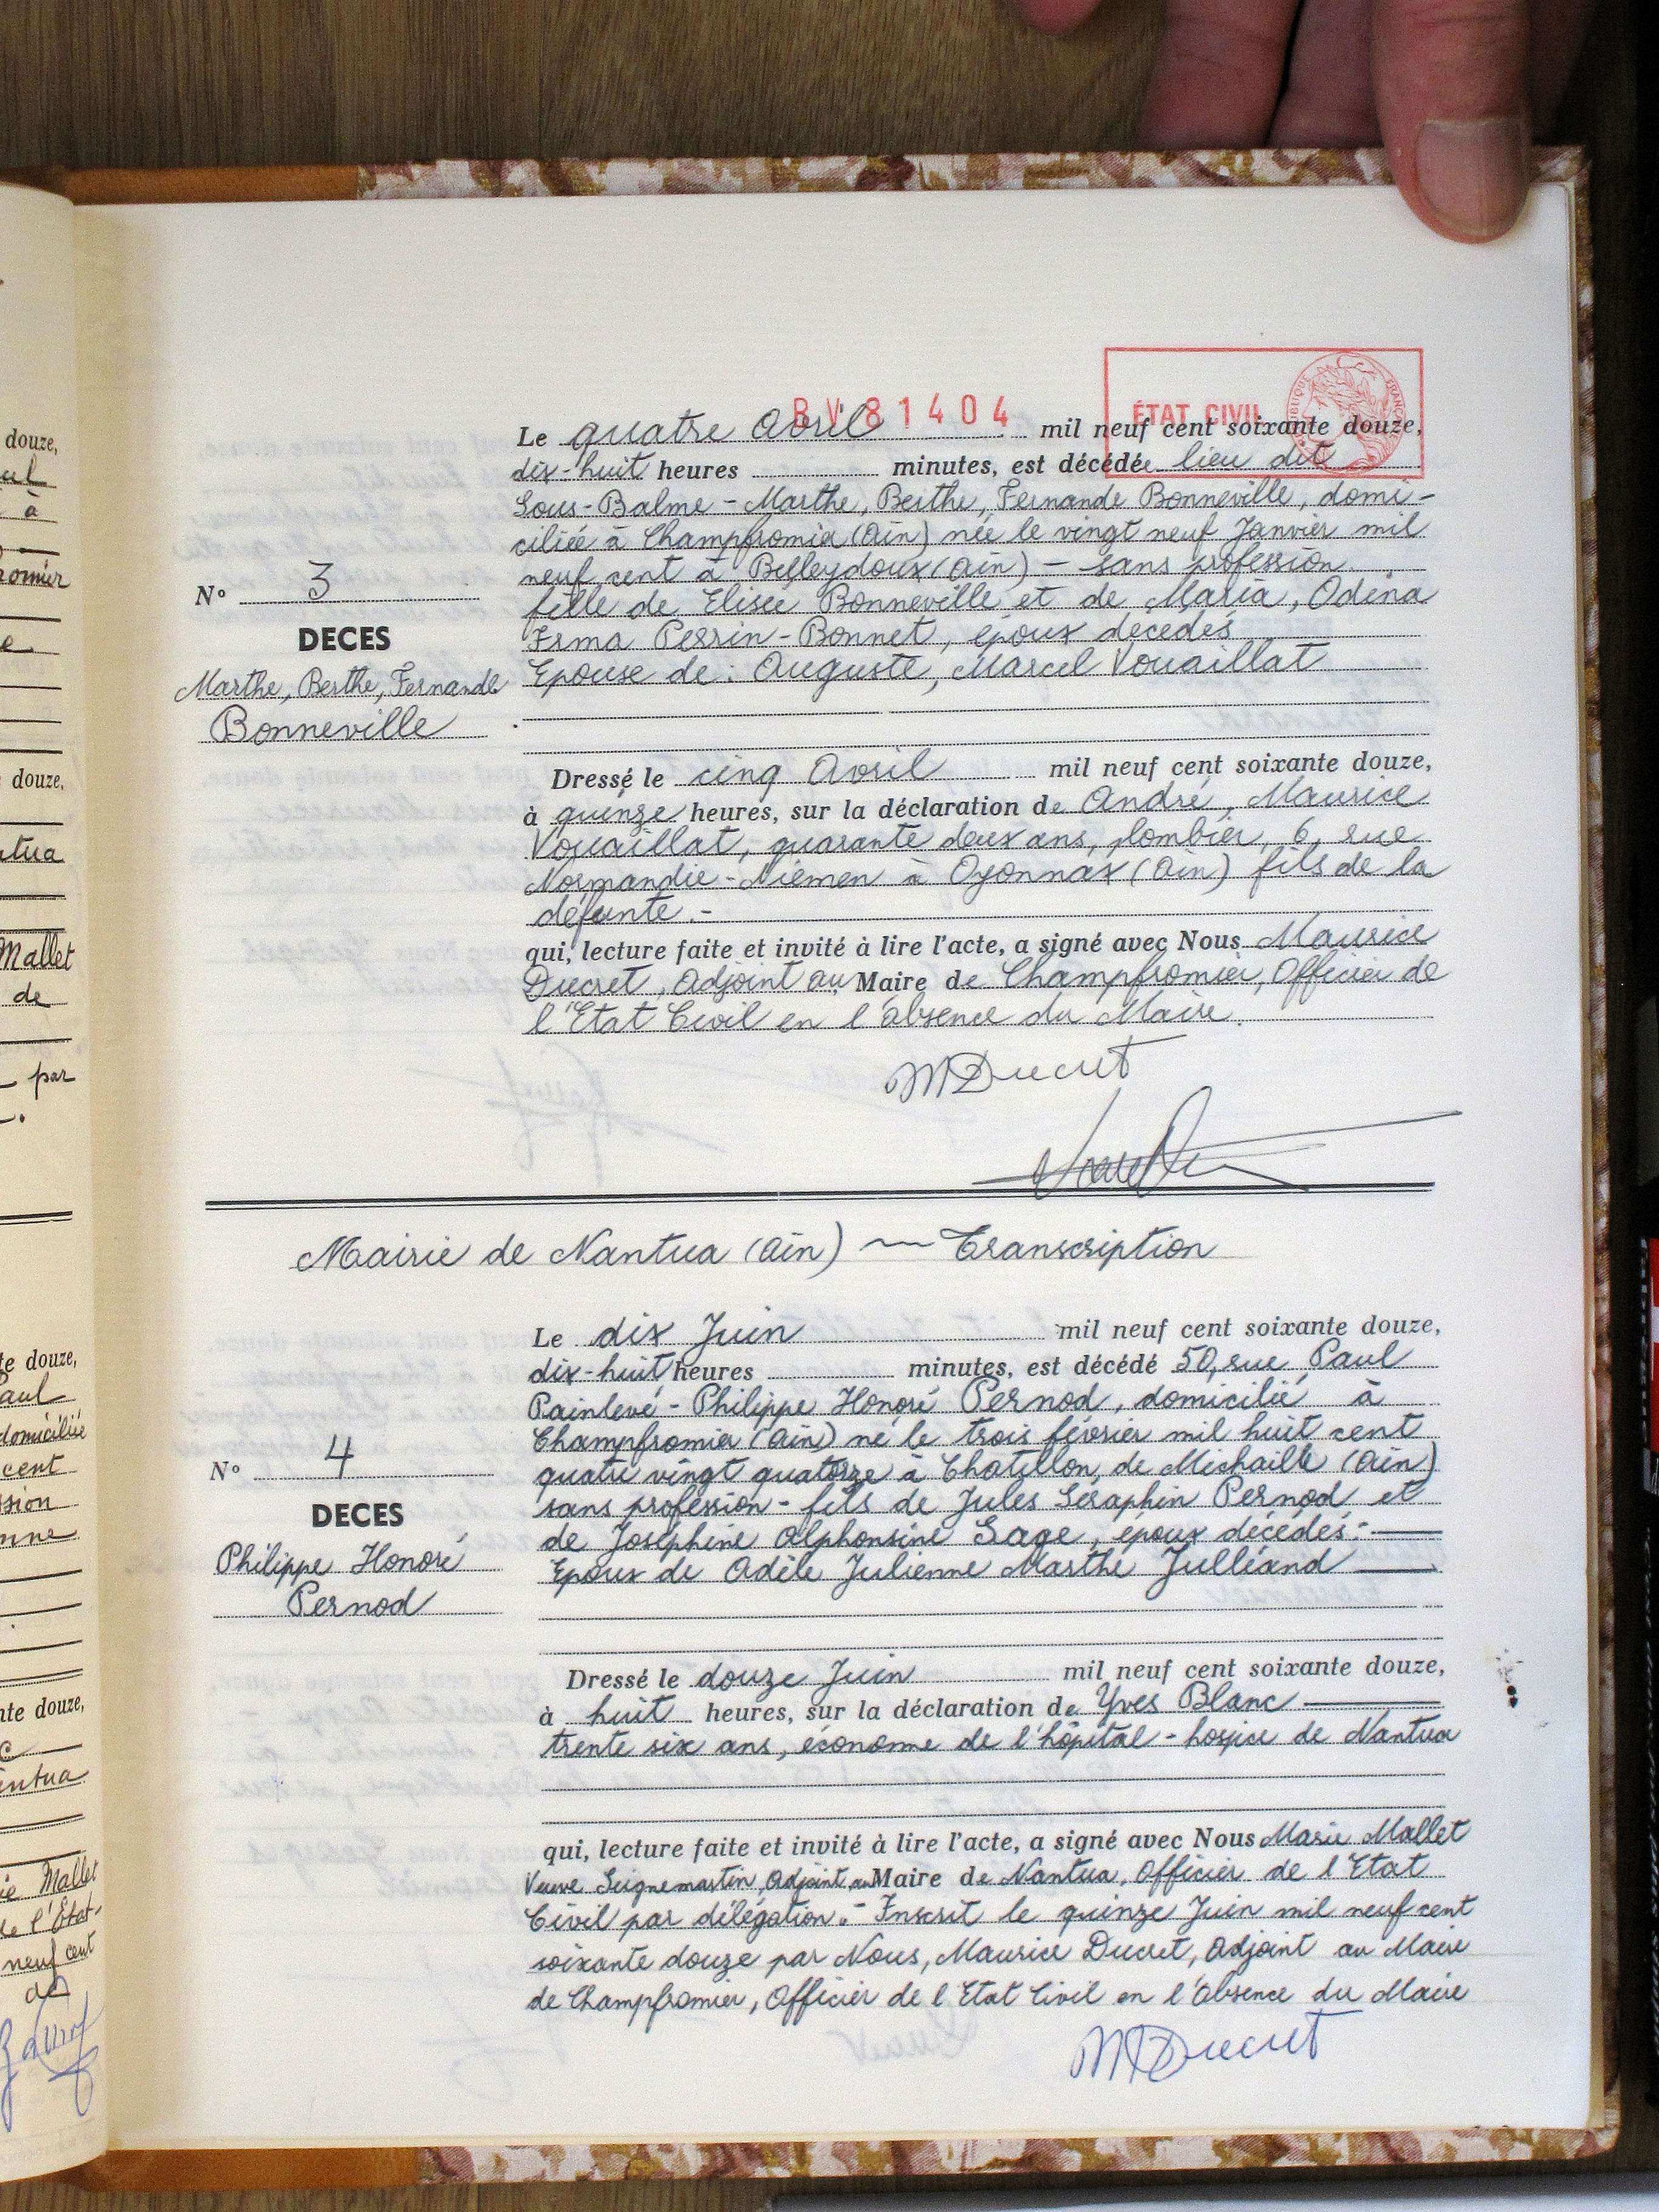 BV81404
ÉTAT CIVIL
RÉPUBLIQUE FRANÇAISE
Le quatre Avril mil neuf cent soixante douze,
dix-huit heures minutes, est décédée lieu dit
Sous-Balme - Marthe, Berthe, Fernande Bonneville, domi-
ciliée à Champfromier (Ain) née le vingt neuf Janvier mil
neuf cent à Belleydoux (Ain) - sans profession
fille de Elisée Bonneville et de Maria, Odina
Irma Perrin-Bonnet, époux décédés
Epouse de : Auguste, Marcel Vouaillat
N° 3
DECES
Marthe, Berthe, Fernande
Bonneville
Dressé le cinq Avril mil neuf cent soixante douze,
à quinze heures, sur la déclaration de André, Maurice
Vouaillat, quarante deux ans, plombier, 6, rue
Normandie-Niémen à Oyonnax (Ain) fils de la
défunte.-
qui, lecture faite et invité à lire l'acte, a signé avec Nous Maurice
Ducret, Adjoint au Maire de Champfromier, Officier de
l'Etat Civil en l'absence du Maire.
MDucret
Mairie de Nantua (Ain) — Transcription
Le dix Juin mil neuf cent soixante douze,
dix-huit heures minutes, est décédé 50, rue Paul
Painlevé - Philippe Honoré Pernod, domicilié à
Champfromier (Ain) né le trois février mil huit cent
quatre vingt quatorze à Chatillon de Michaille (Ain)
sans profession - fils de Jules Séraphin Pernod et
de Joséphine Alphonsine Sage, époux décédés.-
Epoux de Adèle Julienne Marthe Julliand
N° 4
DECES
Philippe Honoré
Pernod
Dressé le douze Juin mil neuf cent soixante douze,
à huit heures, sur la déclaration de Yves Blanc
trente six ans, économe de l'hôpital - hospice de Nantua
qui, lecture faite et invité à lire l'acte, a signé avec Nous Marie Mallet
Veuve Seignemartin, Adjoint au Maire de Nantua, Officier de l'Etat
Civil par délégation.- Inscrit le quinze Juin mil neuf cent
soixante douze par Nous, Maurice Ducret, Adjoint au Maire
de Champfromier, Officier de l'Etat Civil en l'absence du Maire
MDucret